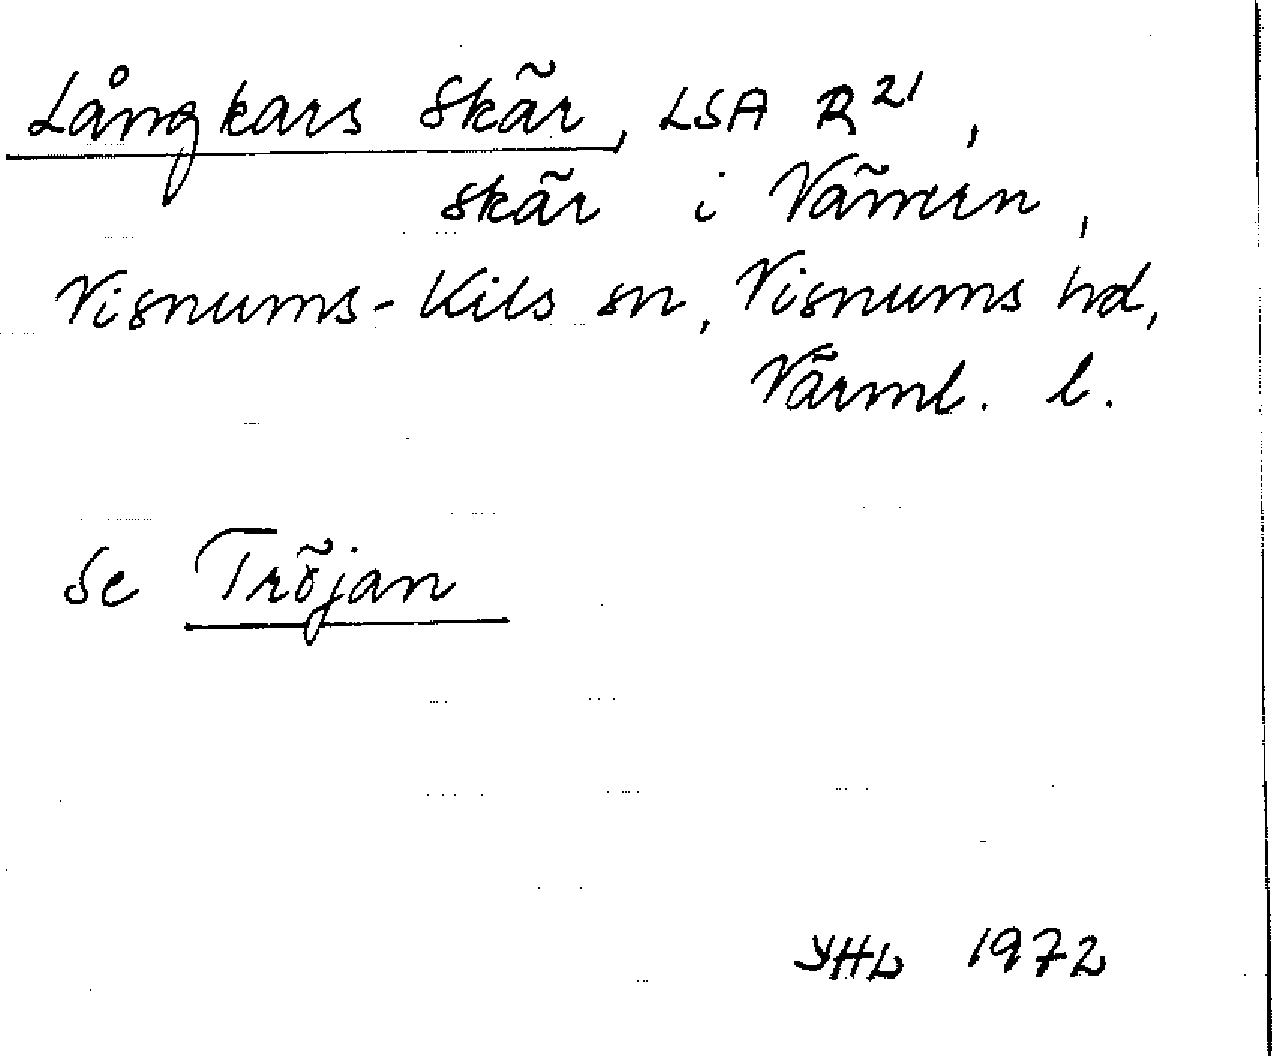 Långkars Skär, LSA R²¹,
skär i Vänern,
Visnums-Kils sn, Visnums hd,
Värml. l.
Se Tröjan
YHL 1972